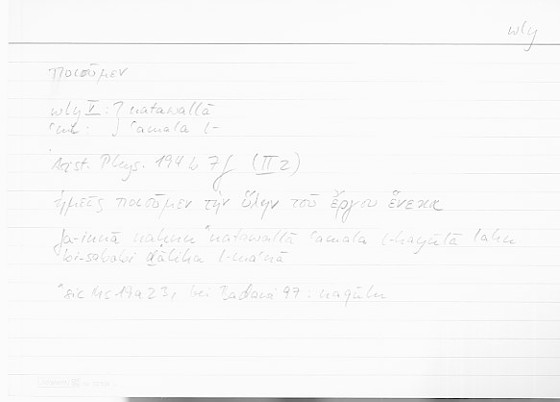 wly
ποιοῦμεν
wly V : } natawallā
ʿml : } ʿamala l-
Arist. Phys. 194 b 7 f (II 2)
ἡμεῖς ποιοῦμεν τὴν ὕλην τοῦ ἔργου ἕνεκα
fa-innā naḥnu natawallā ʿamala l-hayūlā lahu
bi-sababi l-maʿnā
sic Ms 19a 23, bei Badawī 99 :